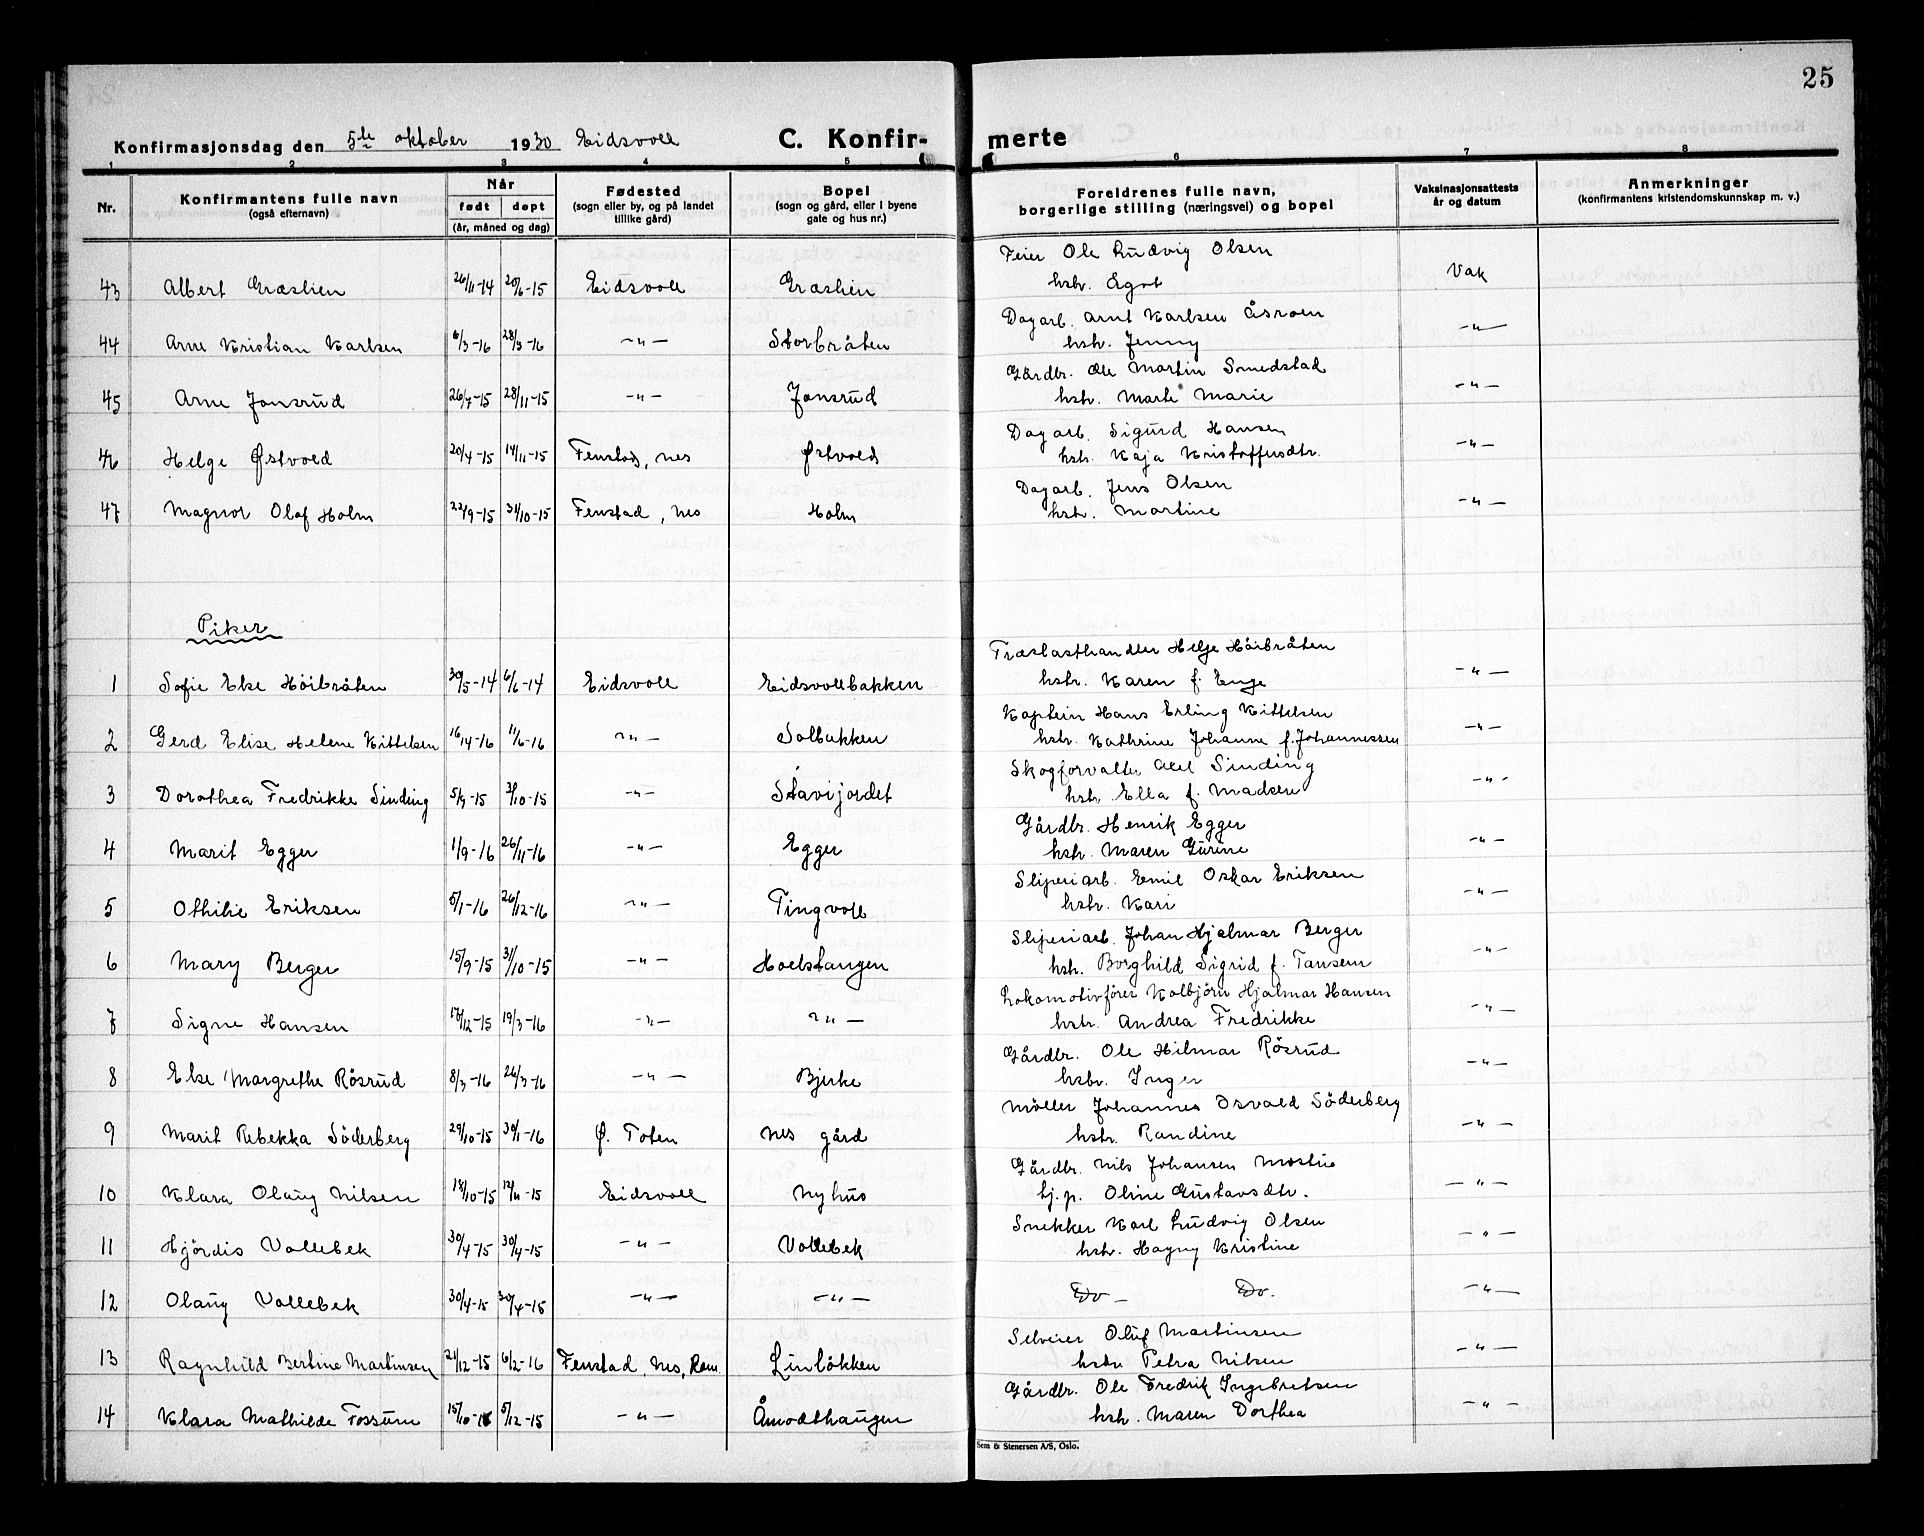 25
Konfirmasjonsdag den 5te oktober 1930 Eidsvoll
C. Konfir-
merte
1 2 3 4 5 6 7 8
Nr.
Konfirmantens fulle navn
(også efternavn)
Når
født døpt
(år, måned og dag)
Fødested
(sogn eller by, og på landet
tillike gård)
Bopel
(sogn og gård, eller i byene
gate og hus nr.)
Foreldrenes fulle navn,
borgerlige stilling (næringsvei) og bopel
Vaksinasjonsattests
år og datum
Anmerkninger
(konfirmantens kristendomskunnskap m. v.)
Feier Ole Ludvig Olsen
43 Albert Græslien 26/11-14 20/6-15 Eidsvoll Græslien hstr. Agot Vak
Dagarb. Arnt Karlsen Åsroen
44 Arne Kristian Karlsen 6/3-16 28/3-16 -"- Storbråten hstr. Jenny -"-
Gårdbr. Ole Martin Smedstad
45 Arne Jonsrud 26/7-15 28/11-15 -"- Jonsrud hstr. Marte Marie -"-
Dagarb. Sigurd Hansen
46 Helge Østvold 20/4-15 14/11-15 Fenstad, Nes Østvold hstr. Kaja Kristoffersdtr. -"-
Dagarb. Jens Olsen
47 Magnor Olaf Holm 22/9-15 31/10-15 Fenstad, Nes Holm hstr. Martine -"-
Piker
Træslasthandler Helge Höibråten
1 Sofie Else Höibråten 30/5-14 6/6-14 Eidsvoll Eidsvollbakken hstr. Karen f. Enge -"-
Kaptein Hans Erling Kittelsen
2 Gerd Elise Helene Kittelsen 16/4-16 11/6-16 -"- Solbakken hstr. Kathrine Johanne f. Johannessen -"-
Skogforvalter Axel Sinding
3 Dorothea Fredrikke Sinding 5/9-15 31/10-15 -"- Stavijordet hstr. Ella f. Madsen -"-
Gårdbr. Henrik Egger
4 Marit Egger 1/9-16 26/11-16 -"- Egger hstr. Maren Gurine -"-
Sliperiarb. Emil Oskar Eriksen
5 Othilie Eriksen 5/1-16 26/12-16 -"- Tingvoll hstr. Kari -"-
Sliperiarb. Johan Hjalmar Berger
6 Mary Berger 15/9-15 31/10-15 -"- Hoelstangen hstr. Borghild Sigrid f. Tansem -"-
Lokomotivfører Kolbjörn Hjalmar Hansen
7 Signe Hansen 17/12-15 19/3-16 -"- -"- hstr. Andrea Fredrikke -"-
Gårdbr. Ole Hilmar Rösrud
8 Else Margrethe Rösrud 8/3-16 26/3-16 -"- Bjerke hstr. Inger -"-
Möller Johannes Osvald Söderberg
9 Marit Rebekka Söderberg 29/10-15 30/1-16 Ø. Toten Nes gård hstr. Randine -"-
Gårdbr. Nils Johansen Mostue
10 Klara Olaug Nilsen 18/10-15 12/11-15 Eidsvoll Nyhus tj.p. Oline Gustavsdtr. -"-
Snekker Karl Ludvig Olsen
11 Hjördis Vollebek 30/4-15 30/4-15 -"- Vollebek hstr. Hagny Kristine -"-
12 Olaug Vollebek 30/4-15 30/4-15 -"- -"- Do - Do. -"-
Selveier Oluf Martinsen
13 Ragnhild Bertine Martinsen 21/12-15 6/2-16 Fenstad, Nes, Rom. Linlökken hstr. Petra Nilsen -"-
Gårdbr. Ole Fredrik Ingebretsen
14 Klara Mathilde Fossum 15/10-15 5/12-15 -"- Åmodthaugen hstr. Maren Dorthea -"-
Sem & Stenersen A/S, Oslo.